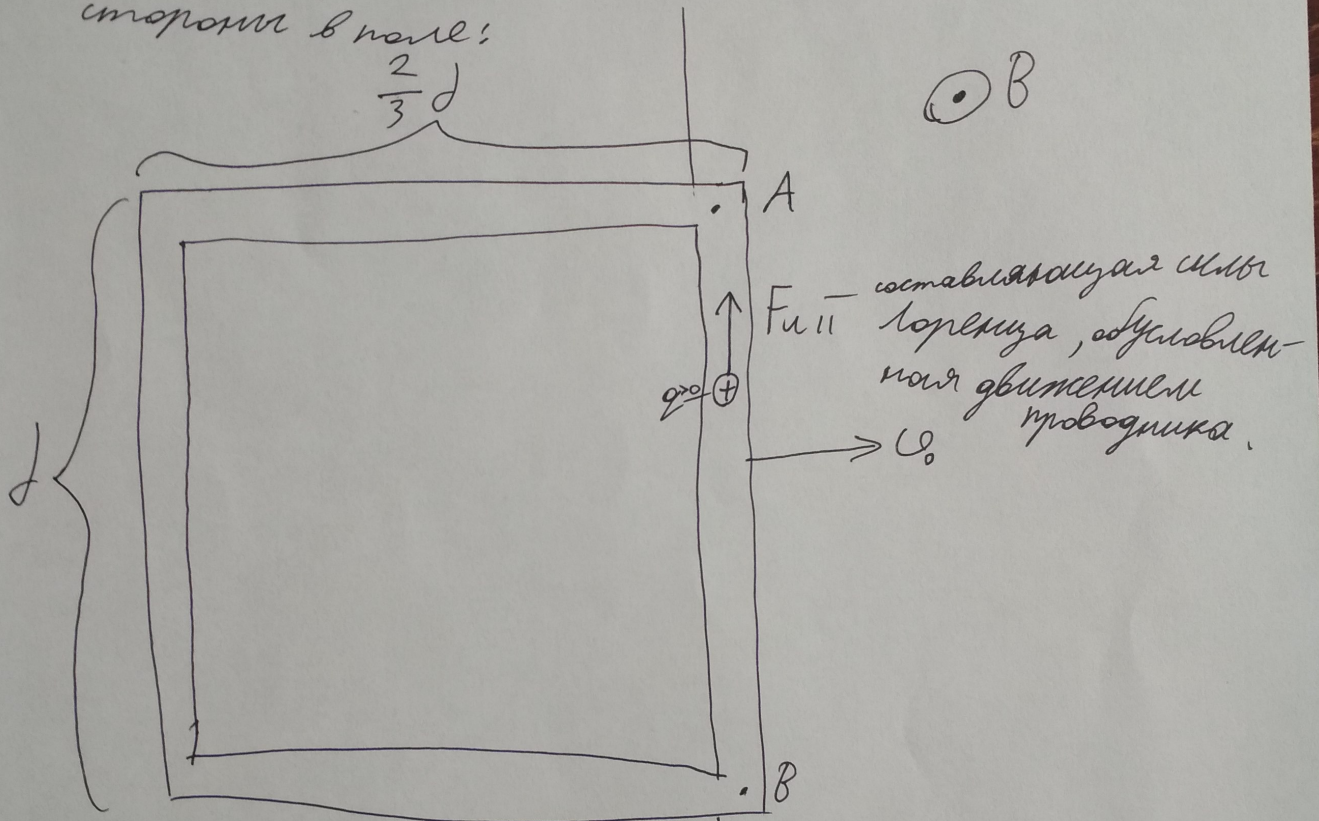 стороны в поле:
2/3 d
⊙ B
A
Fл II – составляющая силы
Лоренца, обусловлен-
ная движением
проводника.
q>0
⊕
d
v₀
B